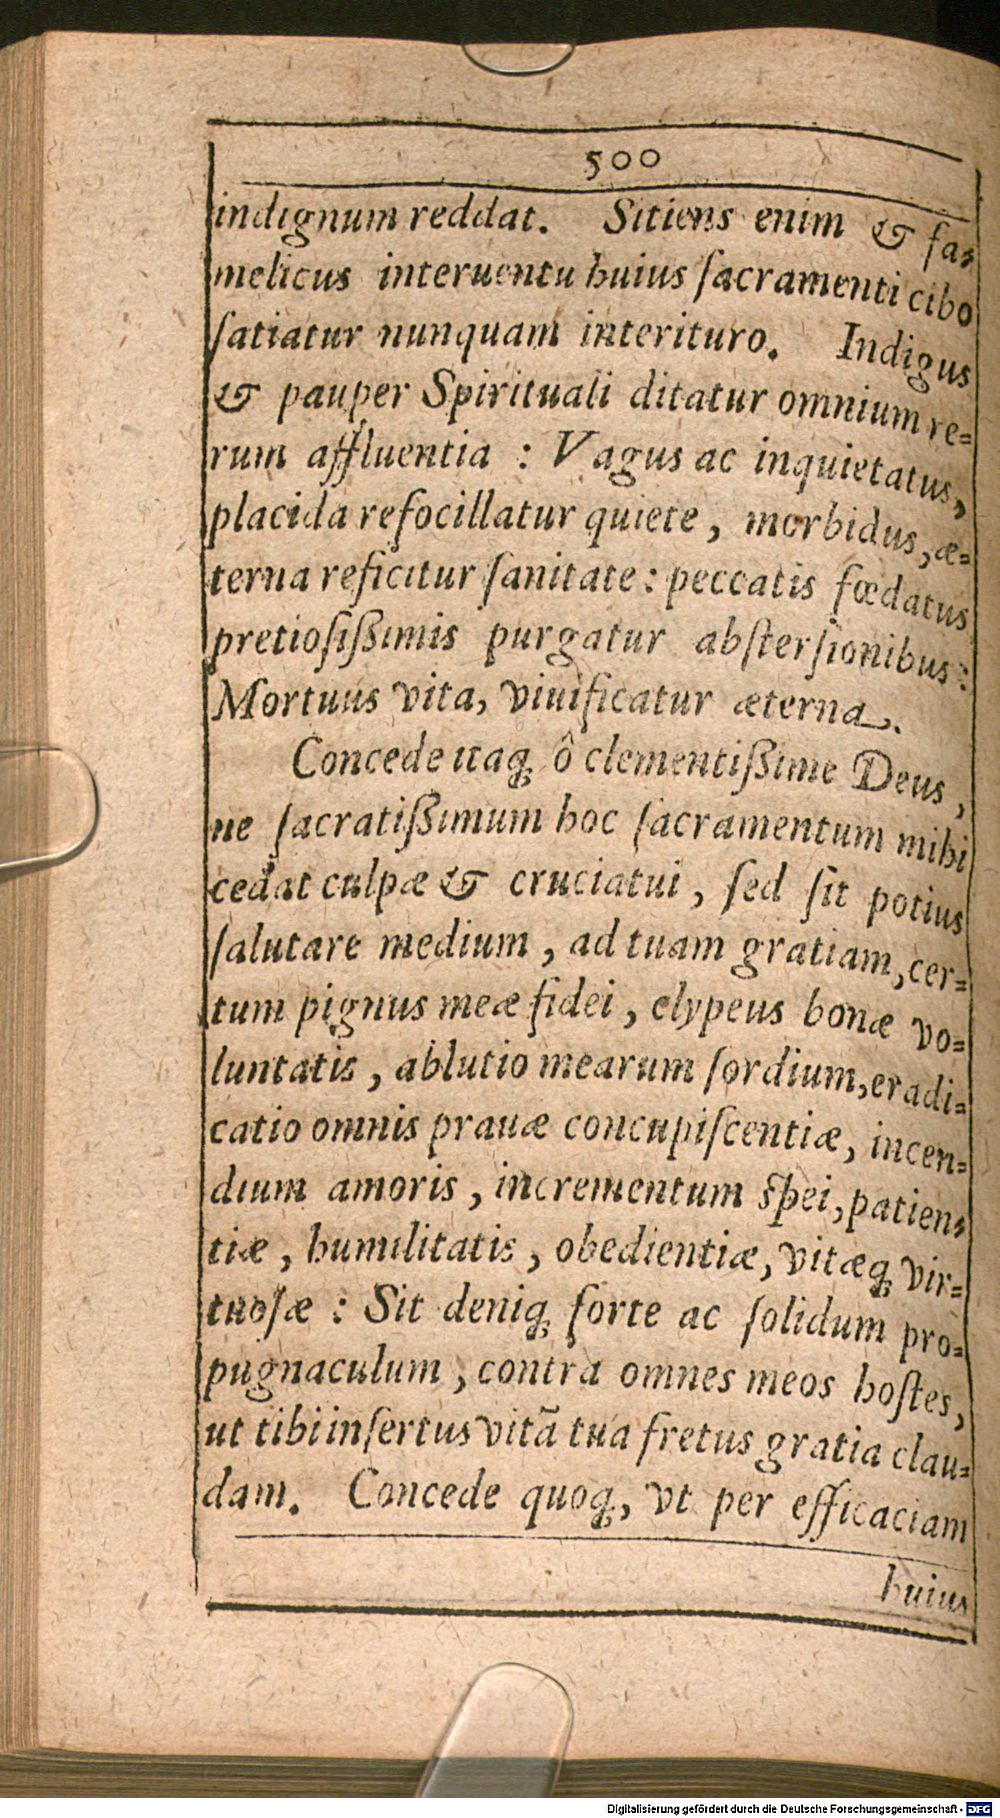 500
indignum reddat. Sitiens enim & fa-
melicus interuentu huius ſacramenti cibo
ſatiatur nunquam interituro. Indigus
& pauper Spirituali ditatur omnium re-
rum affluentia : Vagus ac inquietatus,
placida refocillatur quiete, morbidus, æ-
terna reficitur ſanitate : peccatis fœdatus
pretioſißimis purgatur abſterſionibus :
Mortuus vita, viuificatur æterna.
Concede itaq; ô clementißime Deus,
ne ſacratißimum hoc ſacramentum mihi
cedat culpæ & cruciatui, ſed ſit potius
ſalutare medium, ad tuam gratiam, cer-
tum pignus meæ fidei, clypeus bonæ vo-
luntatis, ablutio mearum ſordium, eradi-
catio omnis prauæ concupiſcentiæ, incen-
dium amoris, incrementum ſpei, patien-
tiæ, humilitatis, obedientiæ, vitæq; vir-
tuoſæ : Sit deniq; forte ac ſolidum pro-
pugnaculum, contra omnes meos hoſtes,
ut tibi inſertus vitã tua fretus gratia clau-
dam. Concede quoq;, vt per efficaciam
huius
Digitalisierung gefördert durch die Deutsche Forschungsgemeinschaft - DFG